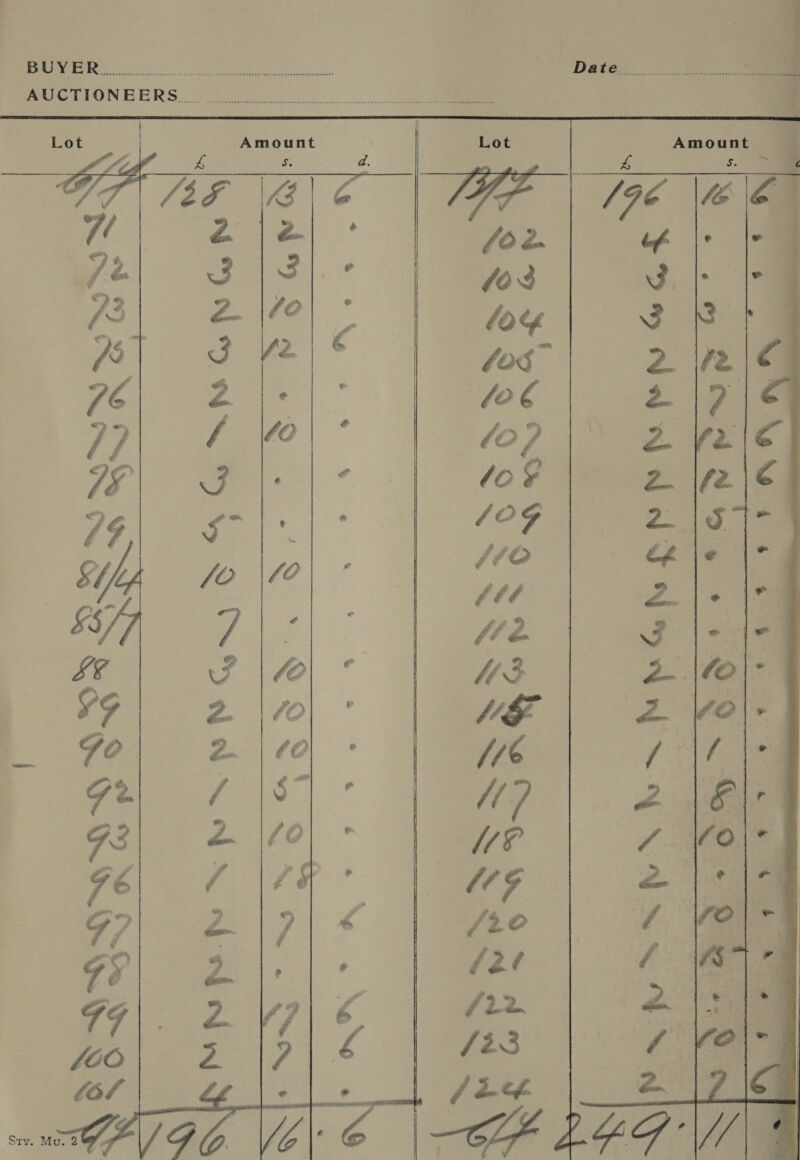 BUYER
AUCTIONEERS
Lot Amount
£ s. d.
B/F 128 13 6
71 2 2 •
72 3 3 •
73 2 10 •
75 3 12 6
76 2 • •
77 1 10 •
78 3 • •
79 5 • •
81/4 10 10 •
85/7 7 • •
88 3 10 •
89 2 10 •
90 2 10 •
92 1 5 •
93 2 10 •
96 1 18 •
97 2 7 6
98 2 • •
99 2 17 6
100 2 7 6
101 4 • •
C/F 196 16 • 6
Sty. Mu. 2
Date
Lot Amount
£ s.
B/F 196 16 6
102 4 • •
103 3 • •
104 3 3 •
105 2 12 6
106 2 7 6
107 2 12 6
108 2 12 6
109 2 5 •
110 4 • •
111 2 • •
112 3 • •
113 2 10 •
115 2 10 •
116 1 1 •
117 2 8 •
118 1 10 •
119 2 • •
120 1 10 •
121 1 15 •
122 2 • •
123 1 10 •
124 2 7 6
C/F 249 • 11 •